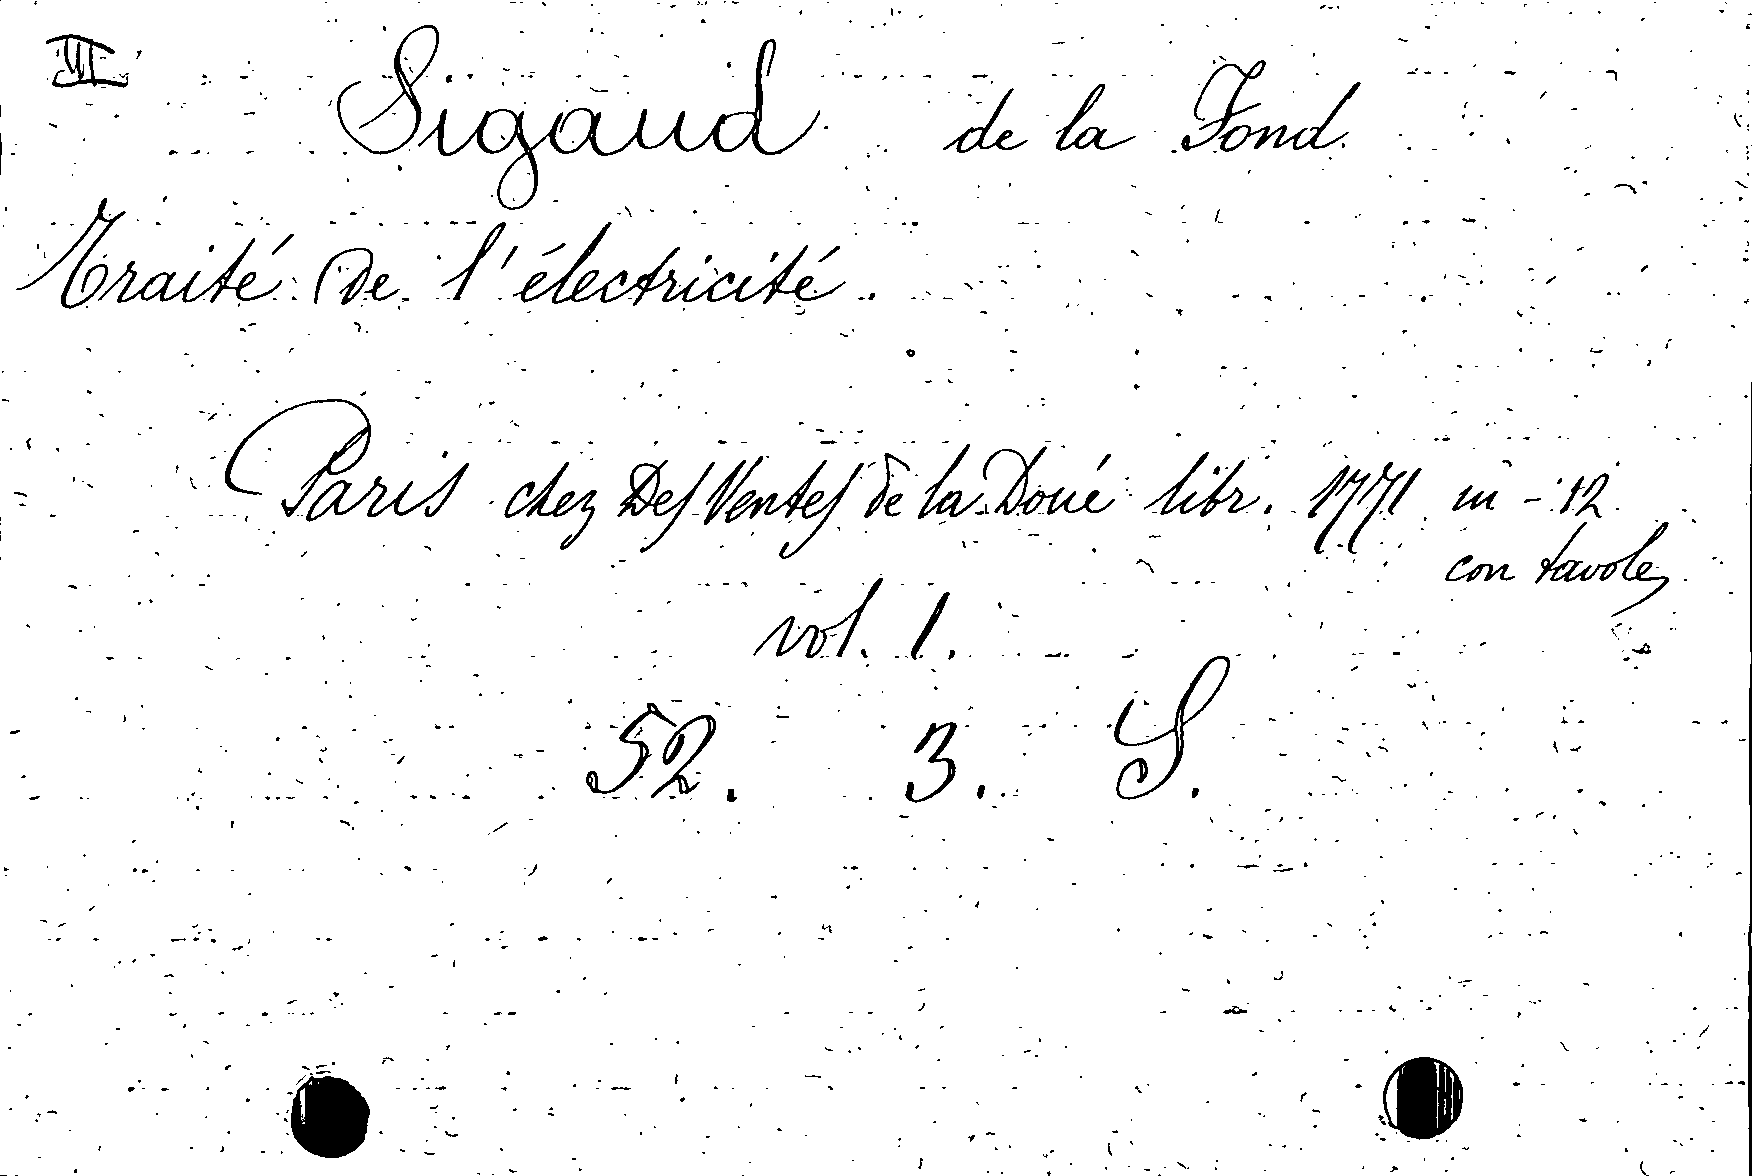 III
Sigaud de la Fond
Traité de l'électricité.
Paris chez Des Ventes de la Doué libr. 1771 in-12
con tavole
vol. 1.
52. 3. S.